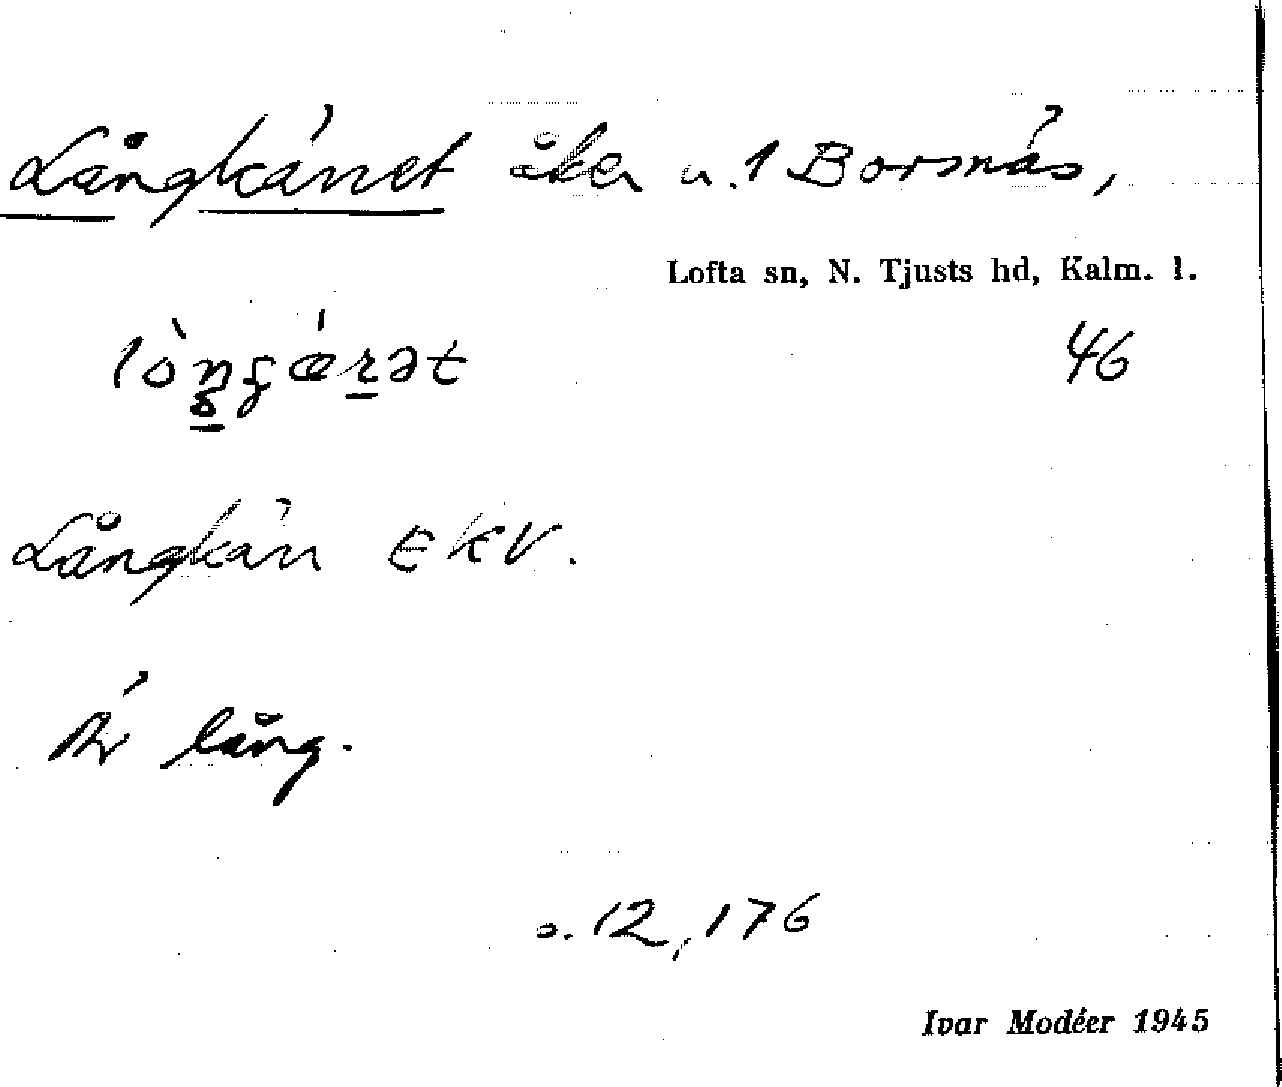 Långkärret åker u. 1 Borsnäs,
Lofta sn, N. Tjusts hd, Kalm. l.
46
Långkärr EKV.
Är lång.
o. 12, 176
Ivar Modéer 1945